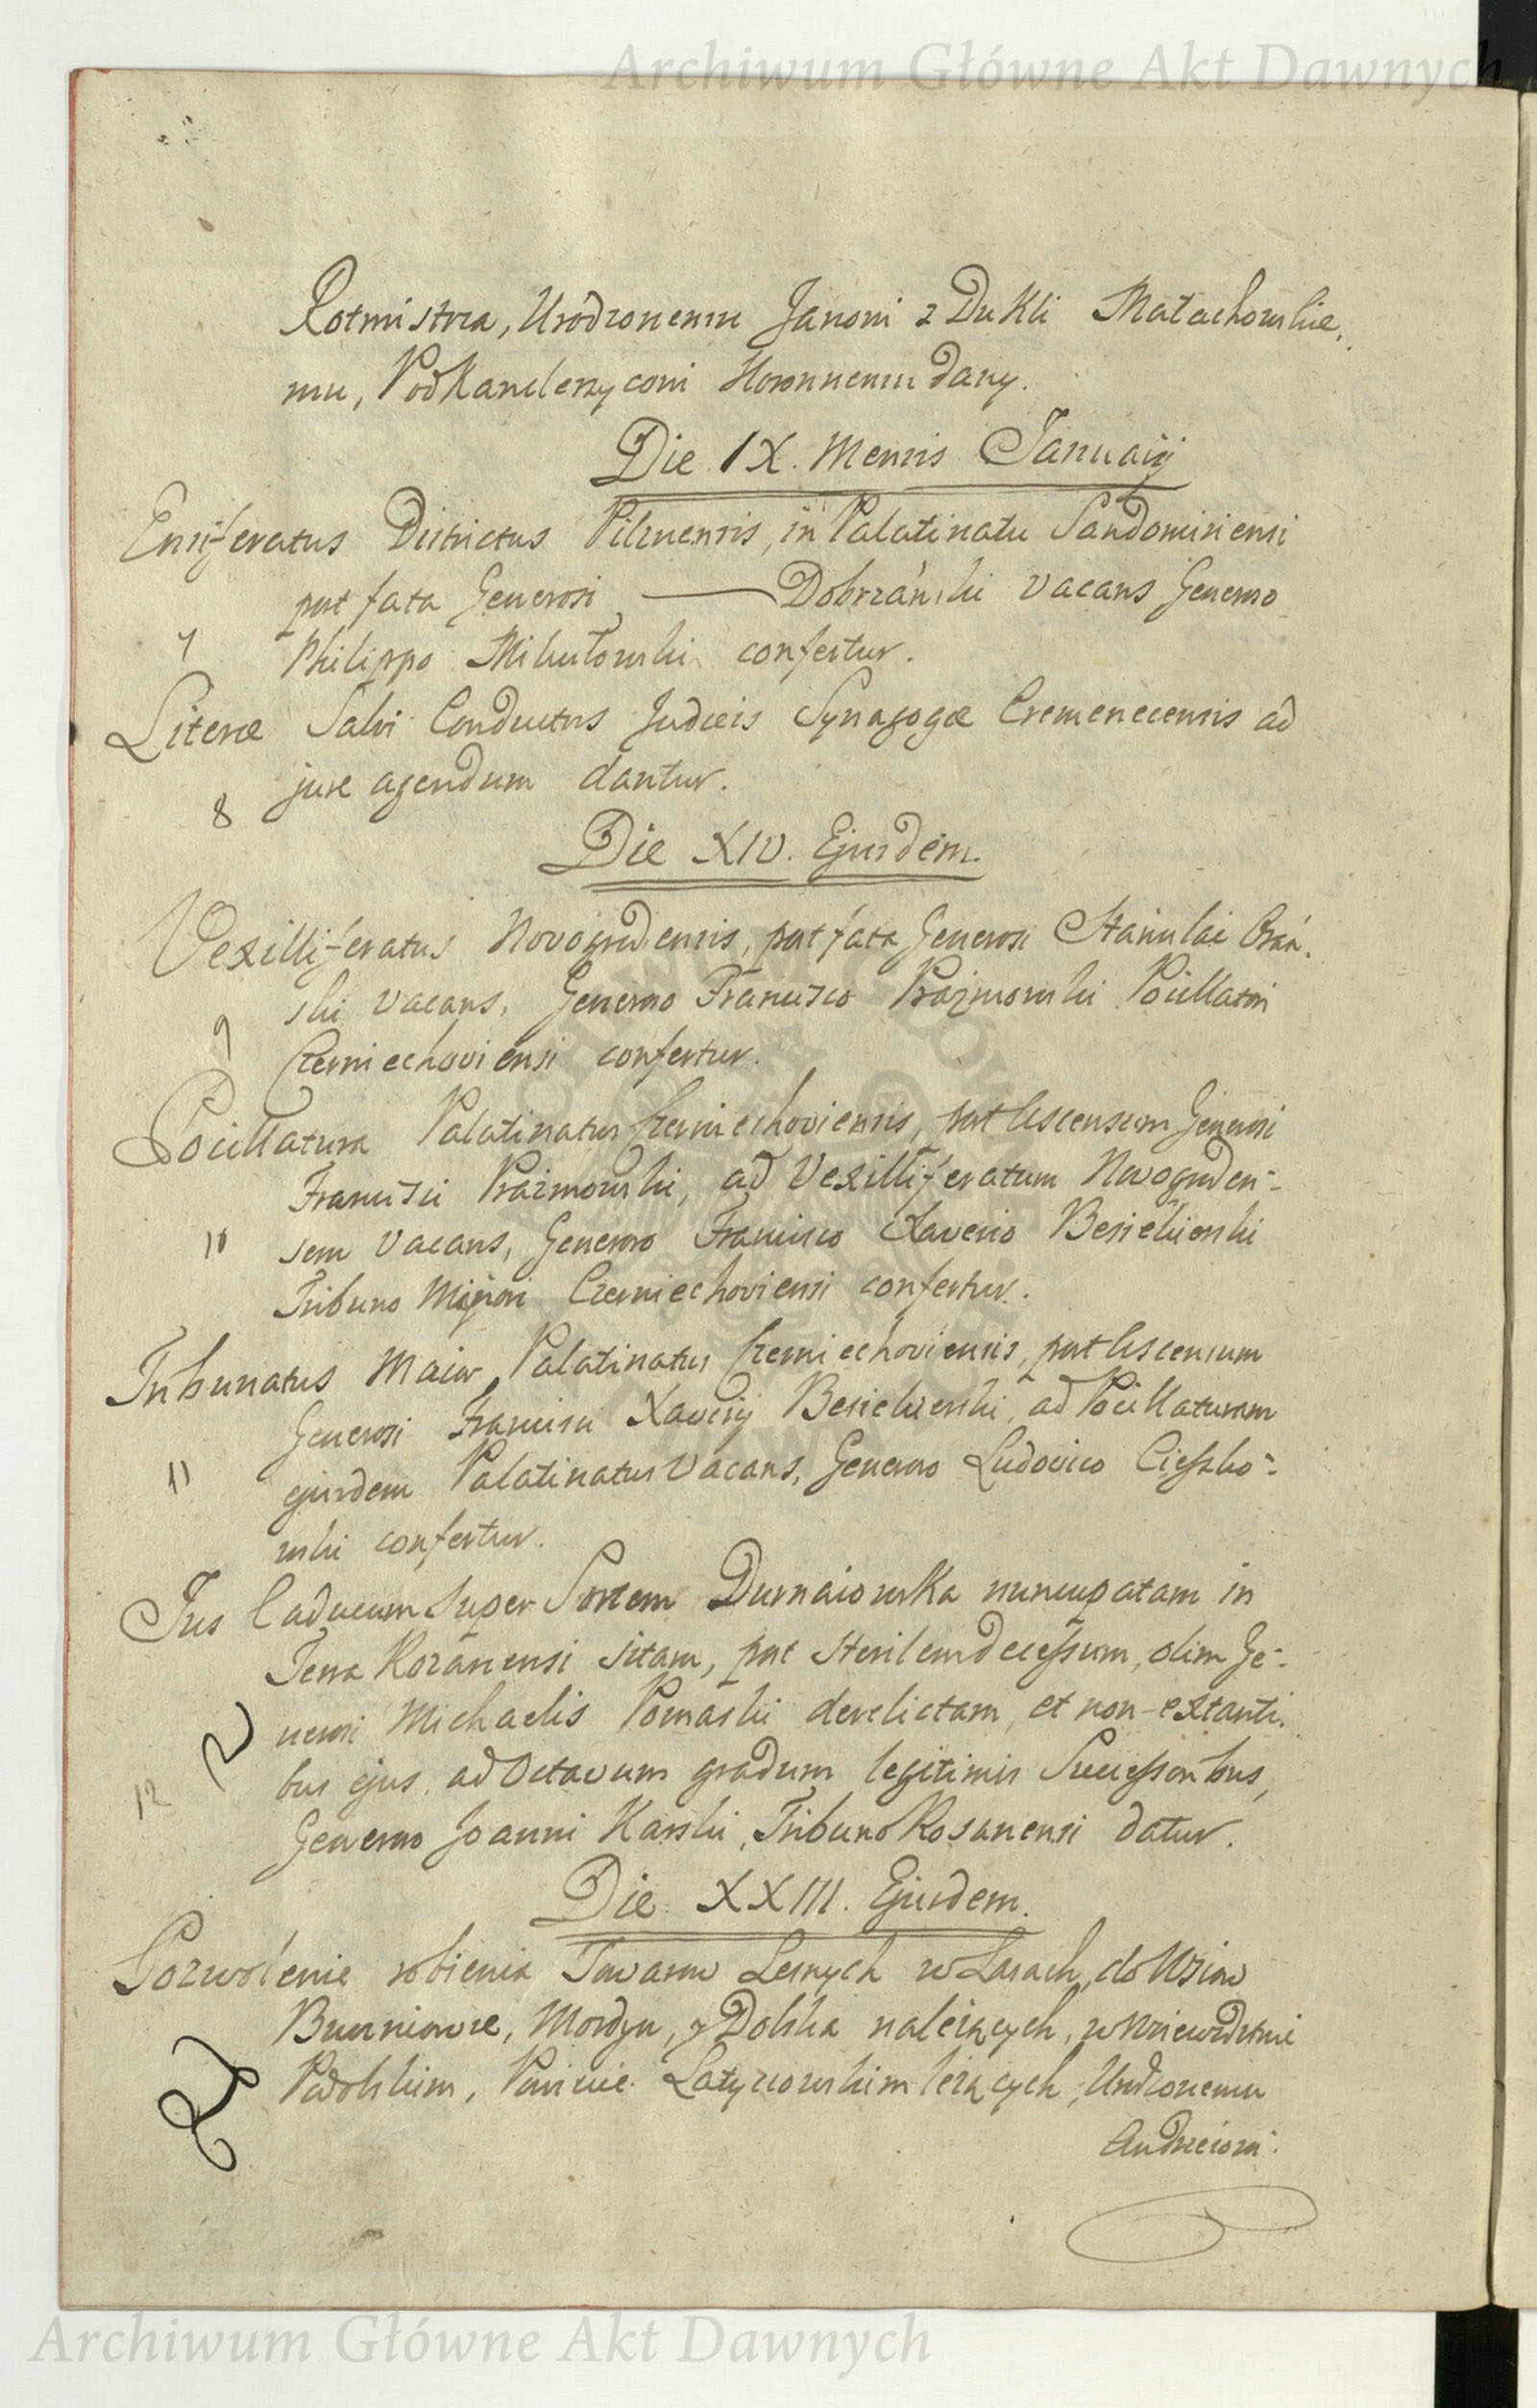 Archiwum Główne Akt Dawnych
Rotmistrza, Urodzonemu Janowi z Dukli Małachowskie,
mu, Podkanclerzycowi Koronnemu dany.
Die IX. Mensis Januarij
Ensiferatus Districtus Pilznensis, in Palatinatu Sandomiriensi
post fata Generosi — Dobrzański vacans Generoso
7 Philippo Mikułowski confertur.
Literæ Salvi Conductus Judæis Synagogæ Cremenecensis ad
jure agendum dantur.
8
Die XIV. Ejusdem.
Vexilliferatus Novogrodensis, post fata Generosi Stanislai
ski vacans, Generoso Francisco Prażmowski Pocillatori
9 Czerniechoviensi confertur.
Pocillatura Palatinatus Czerniechoviensis, post Ascensum Generosi
Francisci Prażmowski, ad Vexilliferatum Novogroden-
10 sem vacans, Generoso Francisco Xaverio Besiekierski
Tribuno Czerniechoviensi confertur.
Tribunatus Maior Palatinatus Czerniechoviensis, post Ascensum
Generosi Francisci Xaverij Besiekierski, ad Pocillaturam
11 ejusdem Palatinatus Vacans, Generoso Ludovico Cieszko-
wski confertur.
Jus Caducum Super Sortem Durnaiowska nuncupatam in
Terra Rozanensi sitam, post sterilem decessum, olim Ge-
nerosi Michaelis Pomaski derelictam, et non-extanti,
bus ejus, ad Octavum gradum legitimis Successoribus,
12
Generoso Joanni Karski, Tribuno Rosanensi datur.
Die XXIII. Ejusdem.
Pozwolenie robienia Towarow Lesnych w Lasach, do Wsiow
Mordyn, y Dolska należących, w Woiewodztwie
Podolskim, Powiecie Latyczowskim leżących, Urodzonemu
Andrzeiowi
Archiwum Główne Akt Dawnych